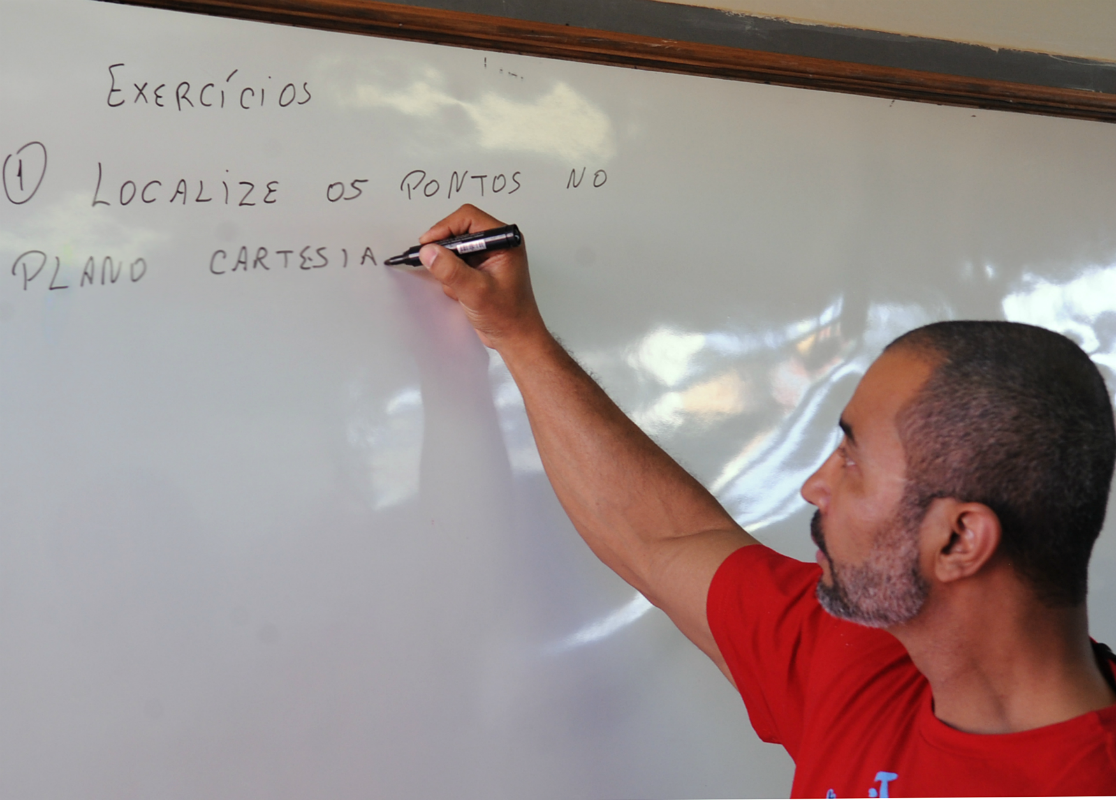 EXERCÍCIOS
① LOCALIZE OS PONTOS NO
PLANO CARTESIA